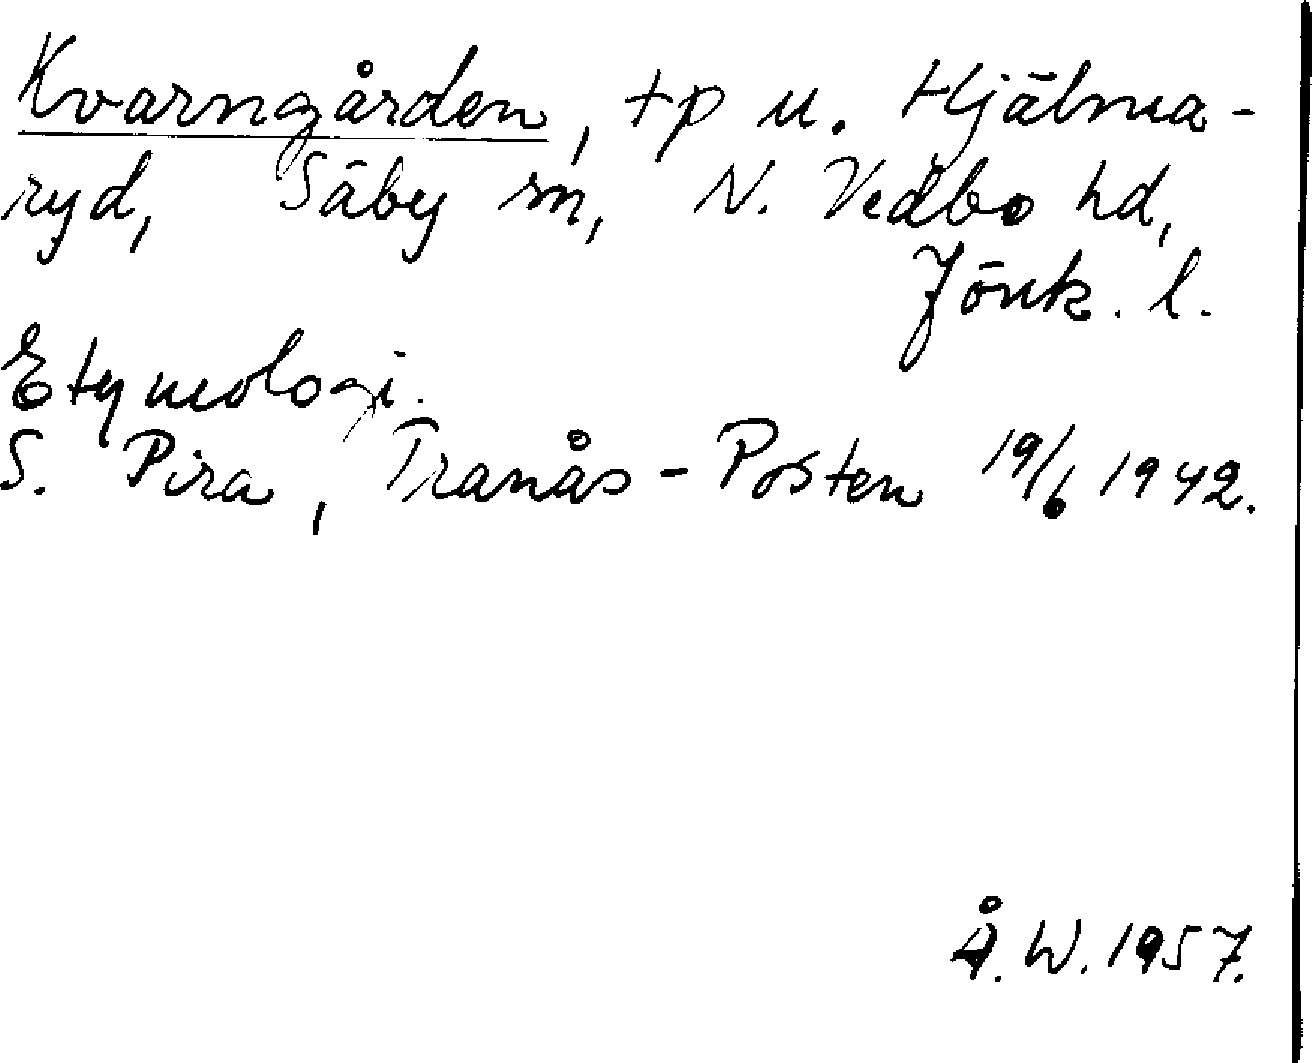 Kvarngården, tp u. Hjälma-
ryd, Säby sn, N. Vedbo hd,
Jönk. l.
Etymologi.
S. Pira, Tranås-Posten 19/6 1942.
Å. W. 1957.